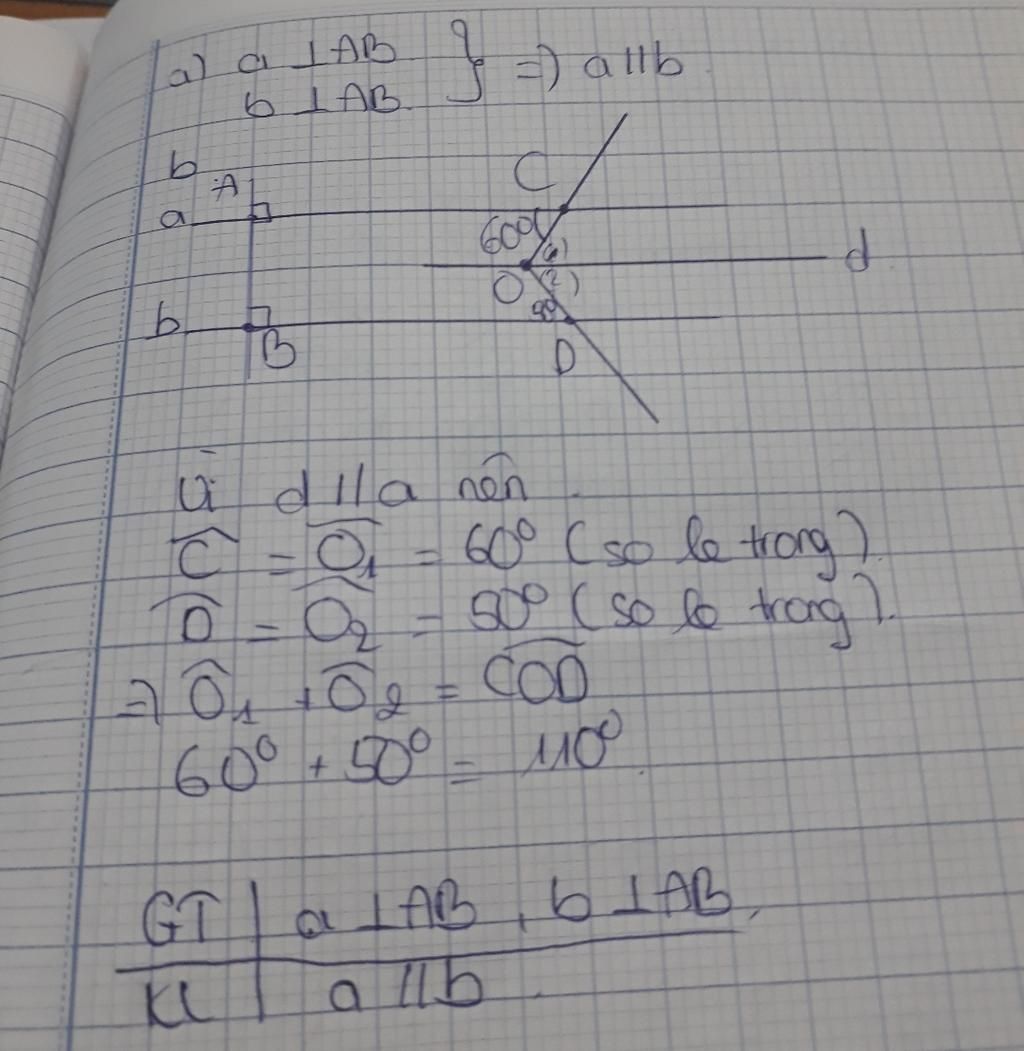 a) a ⊥ AB
b ⊥ AB
} => a // b
b
A
a
C
60°
(1)
O
(2)
d
50°
b
B
D
Vì d // a nên
Ĉ = Ô₁ = 60° (so le trong).
D̂ = Ô₂ = 50° (so le trong).
=> Ô₁ + Ô₂ = CÔD
60° + 50° = 110°.
GT | a ⊥ AB, b ⊥ AB.
KL | a // b.